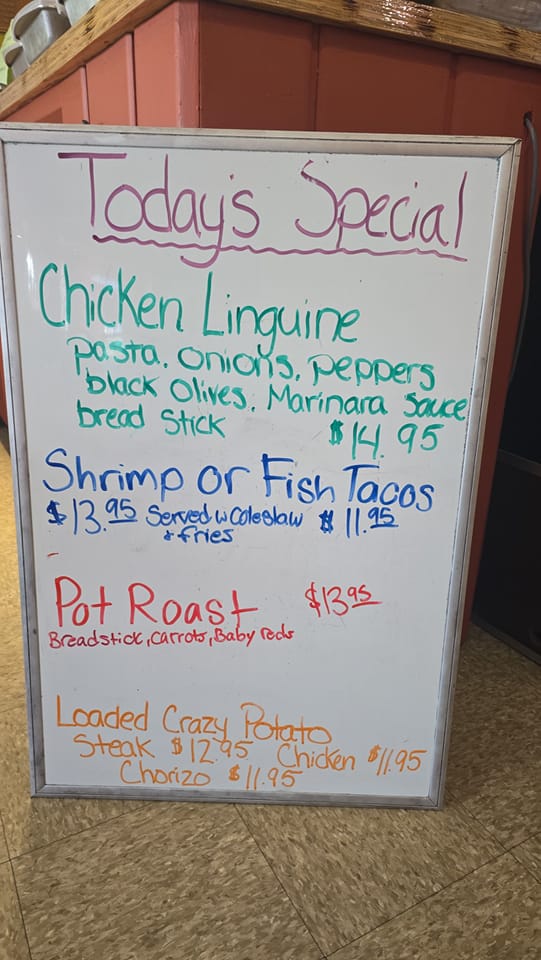 Today's Special
Chicken Linguine
pasta, onions, peppers
black olives, Marinara Sauce
bread stick $14.95
Shrimp or Fish Tacos
$13.95 Served w Coleslaw $11.95
& fries
Pot Roast $13.95
Breadstick, Carrots, Baby reds
Loaded Crazy Potato
Steak $12.95 Chicken $11.95
Chorizo $11.95